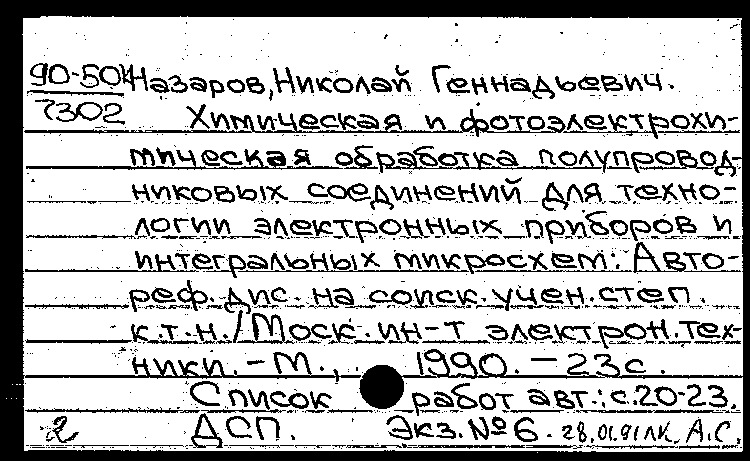 90-50к Назаров, Николай Геннадьевич.
7302 Химическая и фотоэлектрохи-
мическая обработка полупровод-
никовых соединений для техно-
логии электронных приборов и
интегральных микросхем: Авто-
реф. дис. на соиск. учен. степ.
к.т.н. / Моск. ин-т электрон. тех-
ники. - М., 1990. - 23 с.
Список работ авт.: с. 20-23.
2 ДСП. Экз. № 6. 28.01.91 ЛК. А.С.